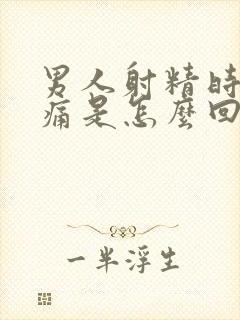 男人射精時
痛是怎麼回
一半浮生